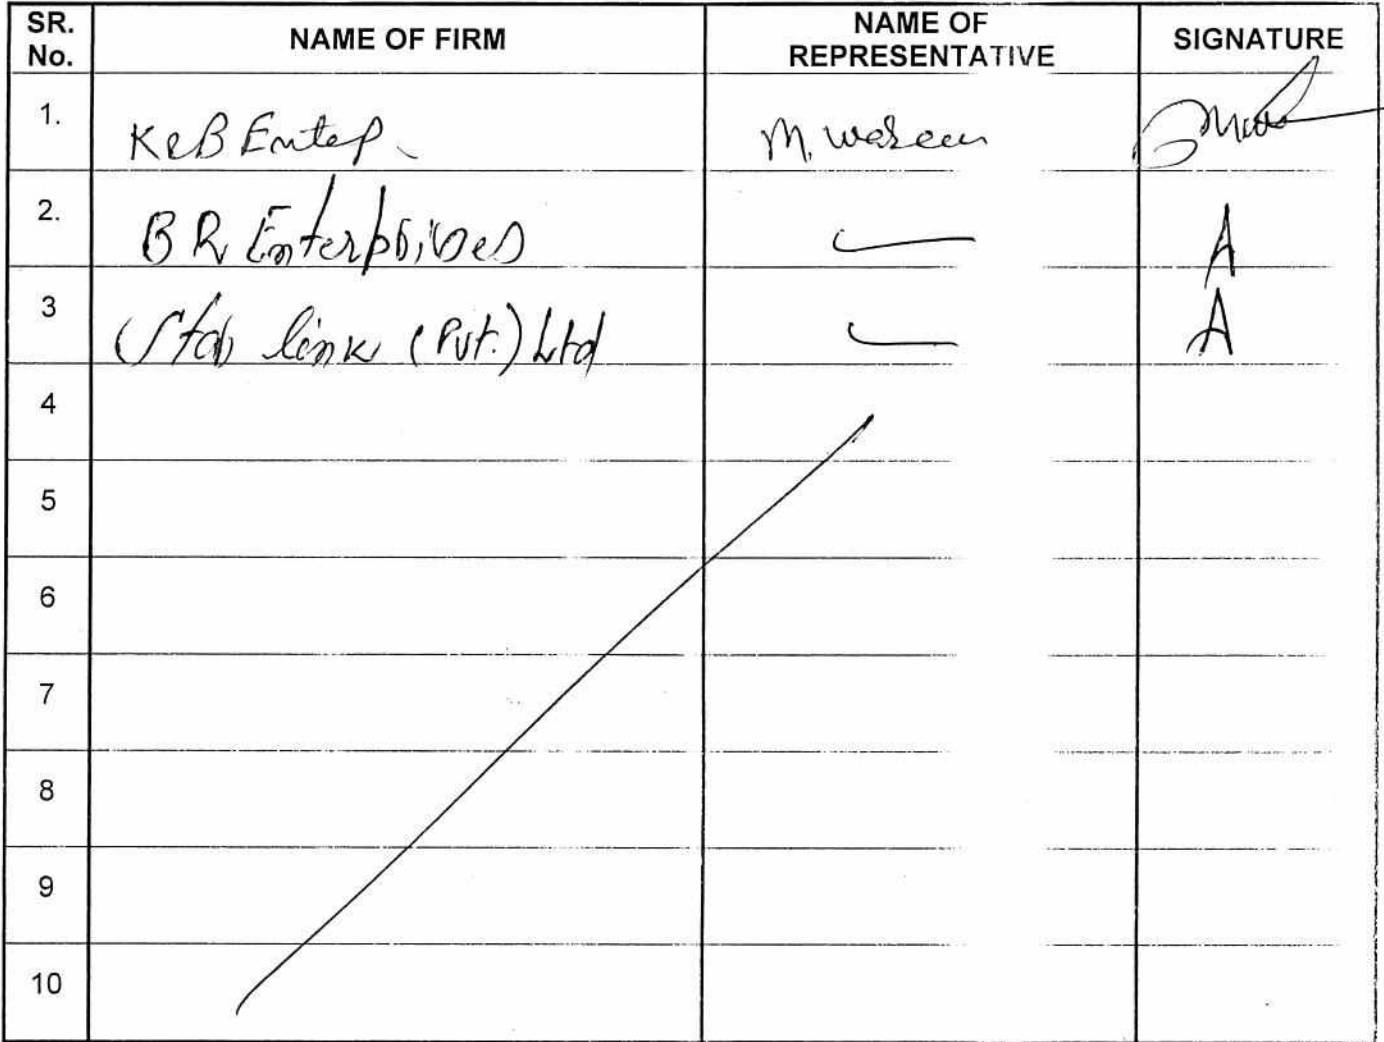 SR. No. NAME OF FIRM NAME OF REPRESENTATIVE SIGNATURE
1. K&B Enterp. M. Waseem
2. BR Enterprises — A
3 Star link (Pvt.) Ltd — A
4
5
6
7
8
9
10